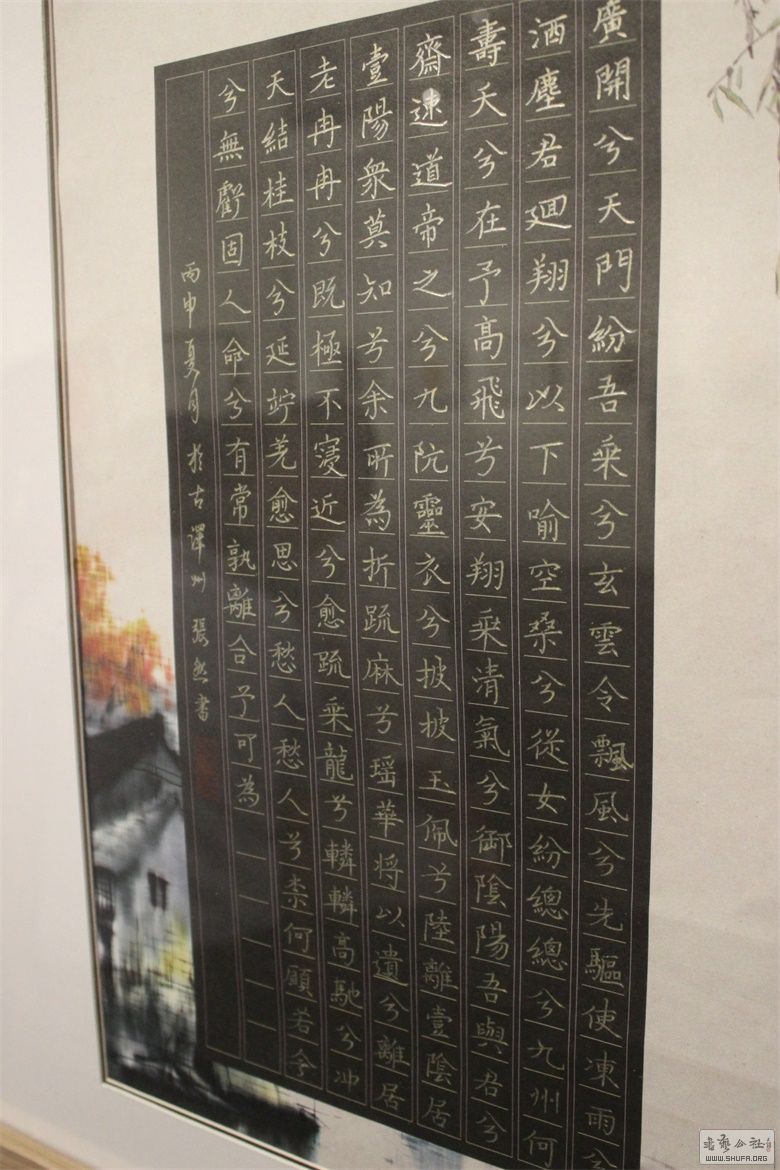 廣開兮天門紛吾乘兮玄雲令飄風兮先驅使凍雨兮
洒塵君廻翔兮以下喻空桑兮從女紛總總兮九州何
壽夭兮在予高飛兮安翔乘清氣兮御陰陽吾與君兮
齋速道帝之兮九阬靈衣兮披披玉佩兮陸離壹陰居
壹陽衆莫知兮余所為折疏麻兮瑤華將以遺兮離居
老冉冉兮既極不寖近兮愈疏乘龍兮轔轔高馳兮冲
天結桂枝兮延竚羌愈思兮愁人愁人兮柰何願若今
兮無虧固人命兮有常孰離合兮可為
丙申夏月於古澤州張然書
書藝公社
WWW.SHUFA.ORG